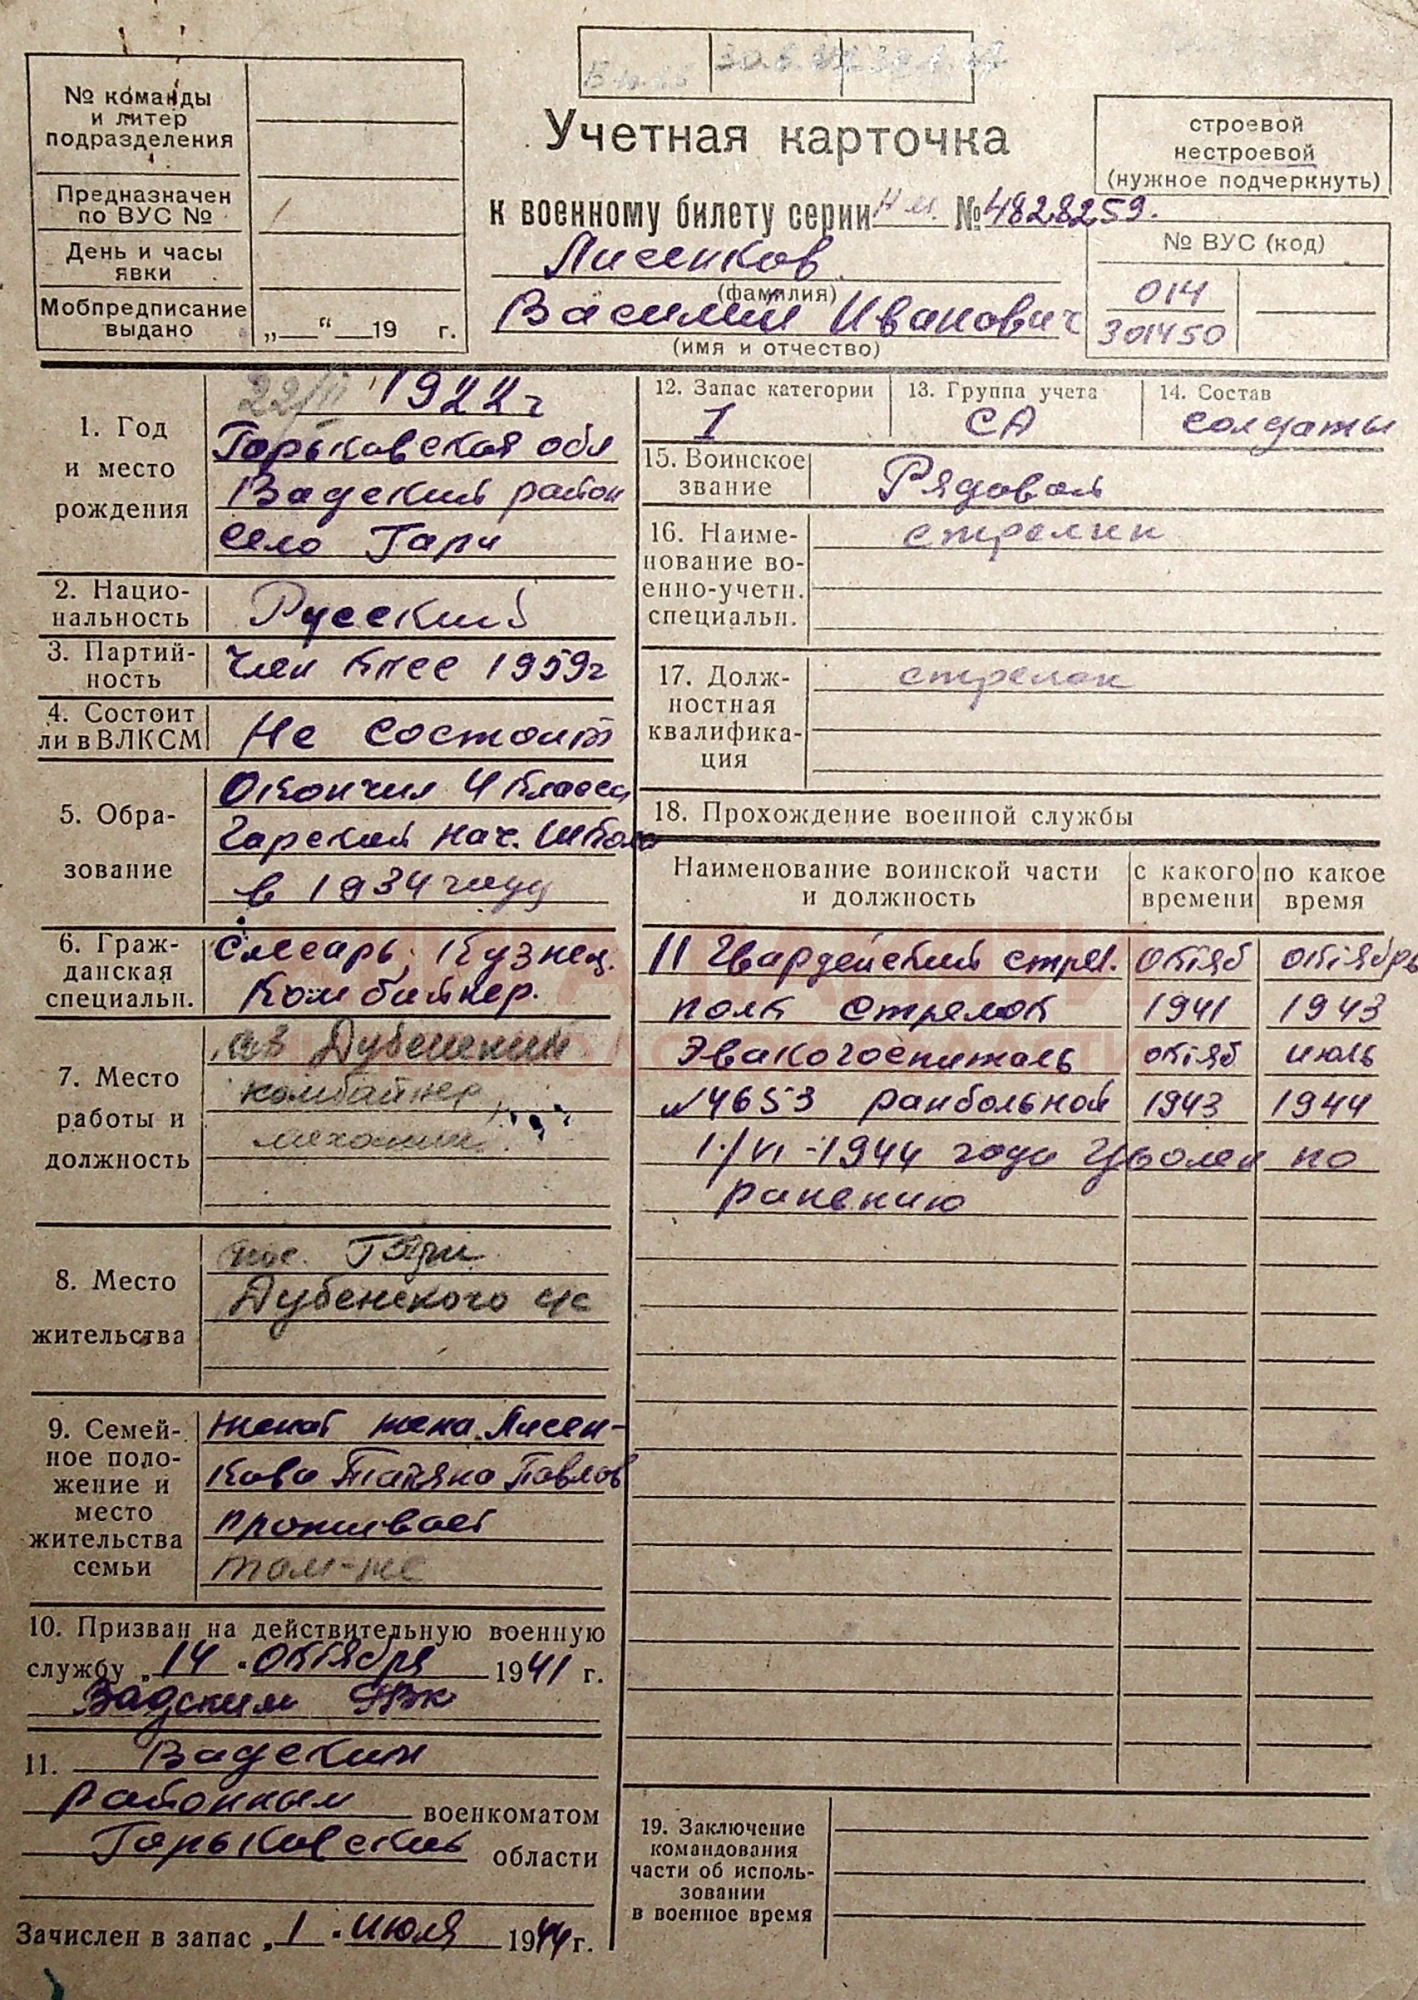 № команды
и литер
подразделения
Предназначен
по ВУС №
День и часы
явки
Мобпредписание
выдано
„ “ 19 г.
Учетная карточка
к военному билету серии НМ. № 4828259.
Лисенков
(фамилия)
Василий Иванович
(имя и отчество)
строевой
нестроевой
(нужное подчеркнуть)
№ ВУС (код)
014
301450
1. Год
и место
рождения
22/II 1922 г
Горьковская обл
Вадский район
село Гари
2. Нацио-
нальность
Русский
3. Партий-
ность
Член КПСС 1959г
4. Состоит
ли в ВЛКСМ
Не состоит
5. Обра-
зование
Окончил 4 класса
Гарский нач. школа
в 1934 году
6. Граж-
данская
специальн.
Слесарь, Кузнец.
Комбайнер.
7. Место
работы и
должность
Дубенский
комбайнер,
механик
8. Место
жительства
пос. Гари
Дубенского с/с
9. Семей-
ное поло-
жение и
место
жительства
семьи
женат жена Лисен-
кова Татьяна Павлов
проживает
там-же
10. Призван на действительную военную
службу „14 “ октября 1941 г.
Вадским РВК
11. Вадским
районным военкоматом
Горьковской области
Зачислен в запас „1 “ июля 1944 г.
12. Запас категории
I
13. Группа учета
СА
14. Состав
солдаты
15. Воинское
звание
Рядовой
16. Наиме-
нование во-
енно-учетн.
специальн.
стрелки
17. Долж-
ностная
квалифика-
ция
стрелок
18. Прохождение военной службы
Наименование воинской части
и должность
с какого
времени
по какое
время
11 Гвардейский стрел. октяб октябрь
полк стрелок 1941 1943
Эвакогоспиталь октяб июль
№4653 ранбольной 1943 1944
1/VI-1944 года Уволен по
ранению
19. Заключение
командования
части об исполь-
зовании
в военное время